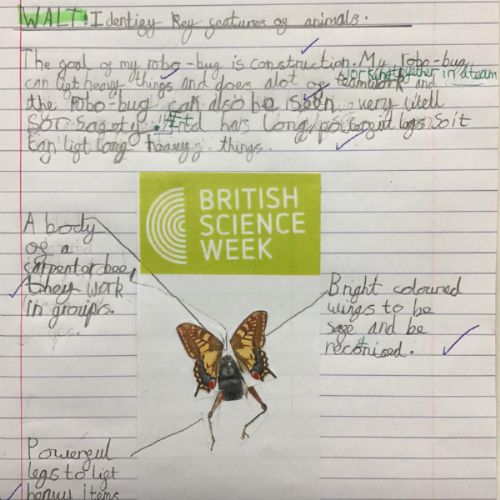 WALT: Identify key features of animals.
The goal of my robo-bug is construction. My robo-bug
can ligt heavy things and does alot of teamwork and
works together in a team
the robo-bug can also be seen very well
for sagety. It has long powergul legs so it
can ligt long heavy things.
BRITISH
SCIENCE
WEEK
A body
of a
carpentor bee,
they work
in groups.
Bright coloured
wings to be
sage and be
reconised.
Powergul
legs to ligt
heavy items